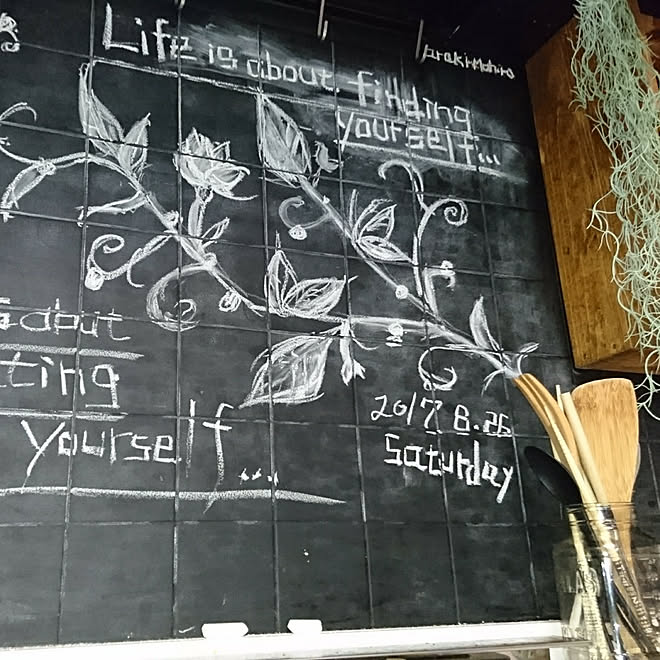 Life is about finding
yourself...
ArakiMahiro
about
ting
yourself...
2017 8.26
Saturday